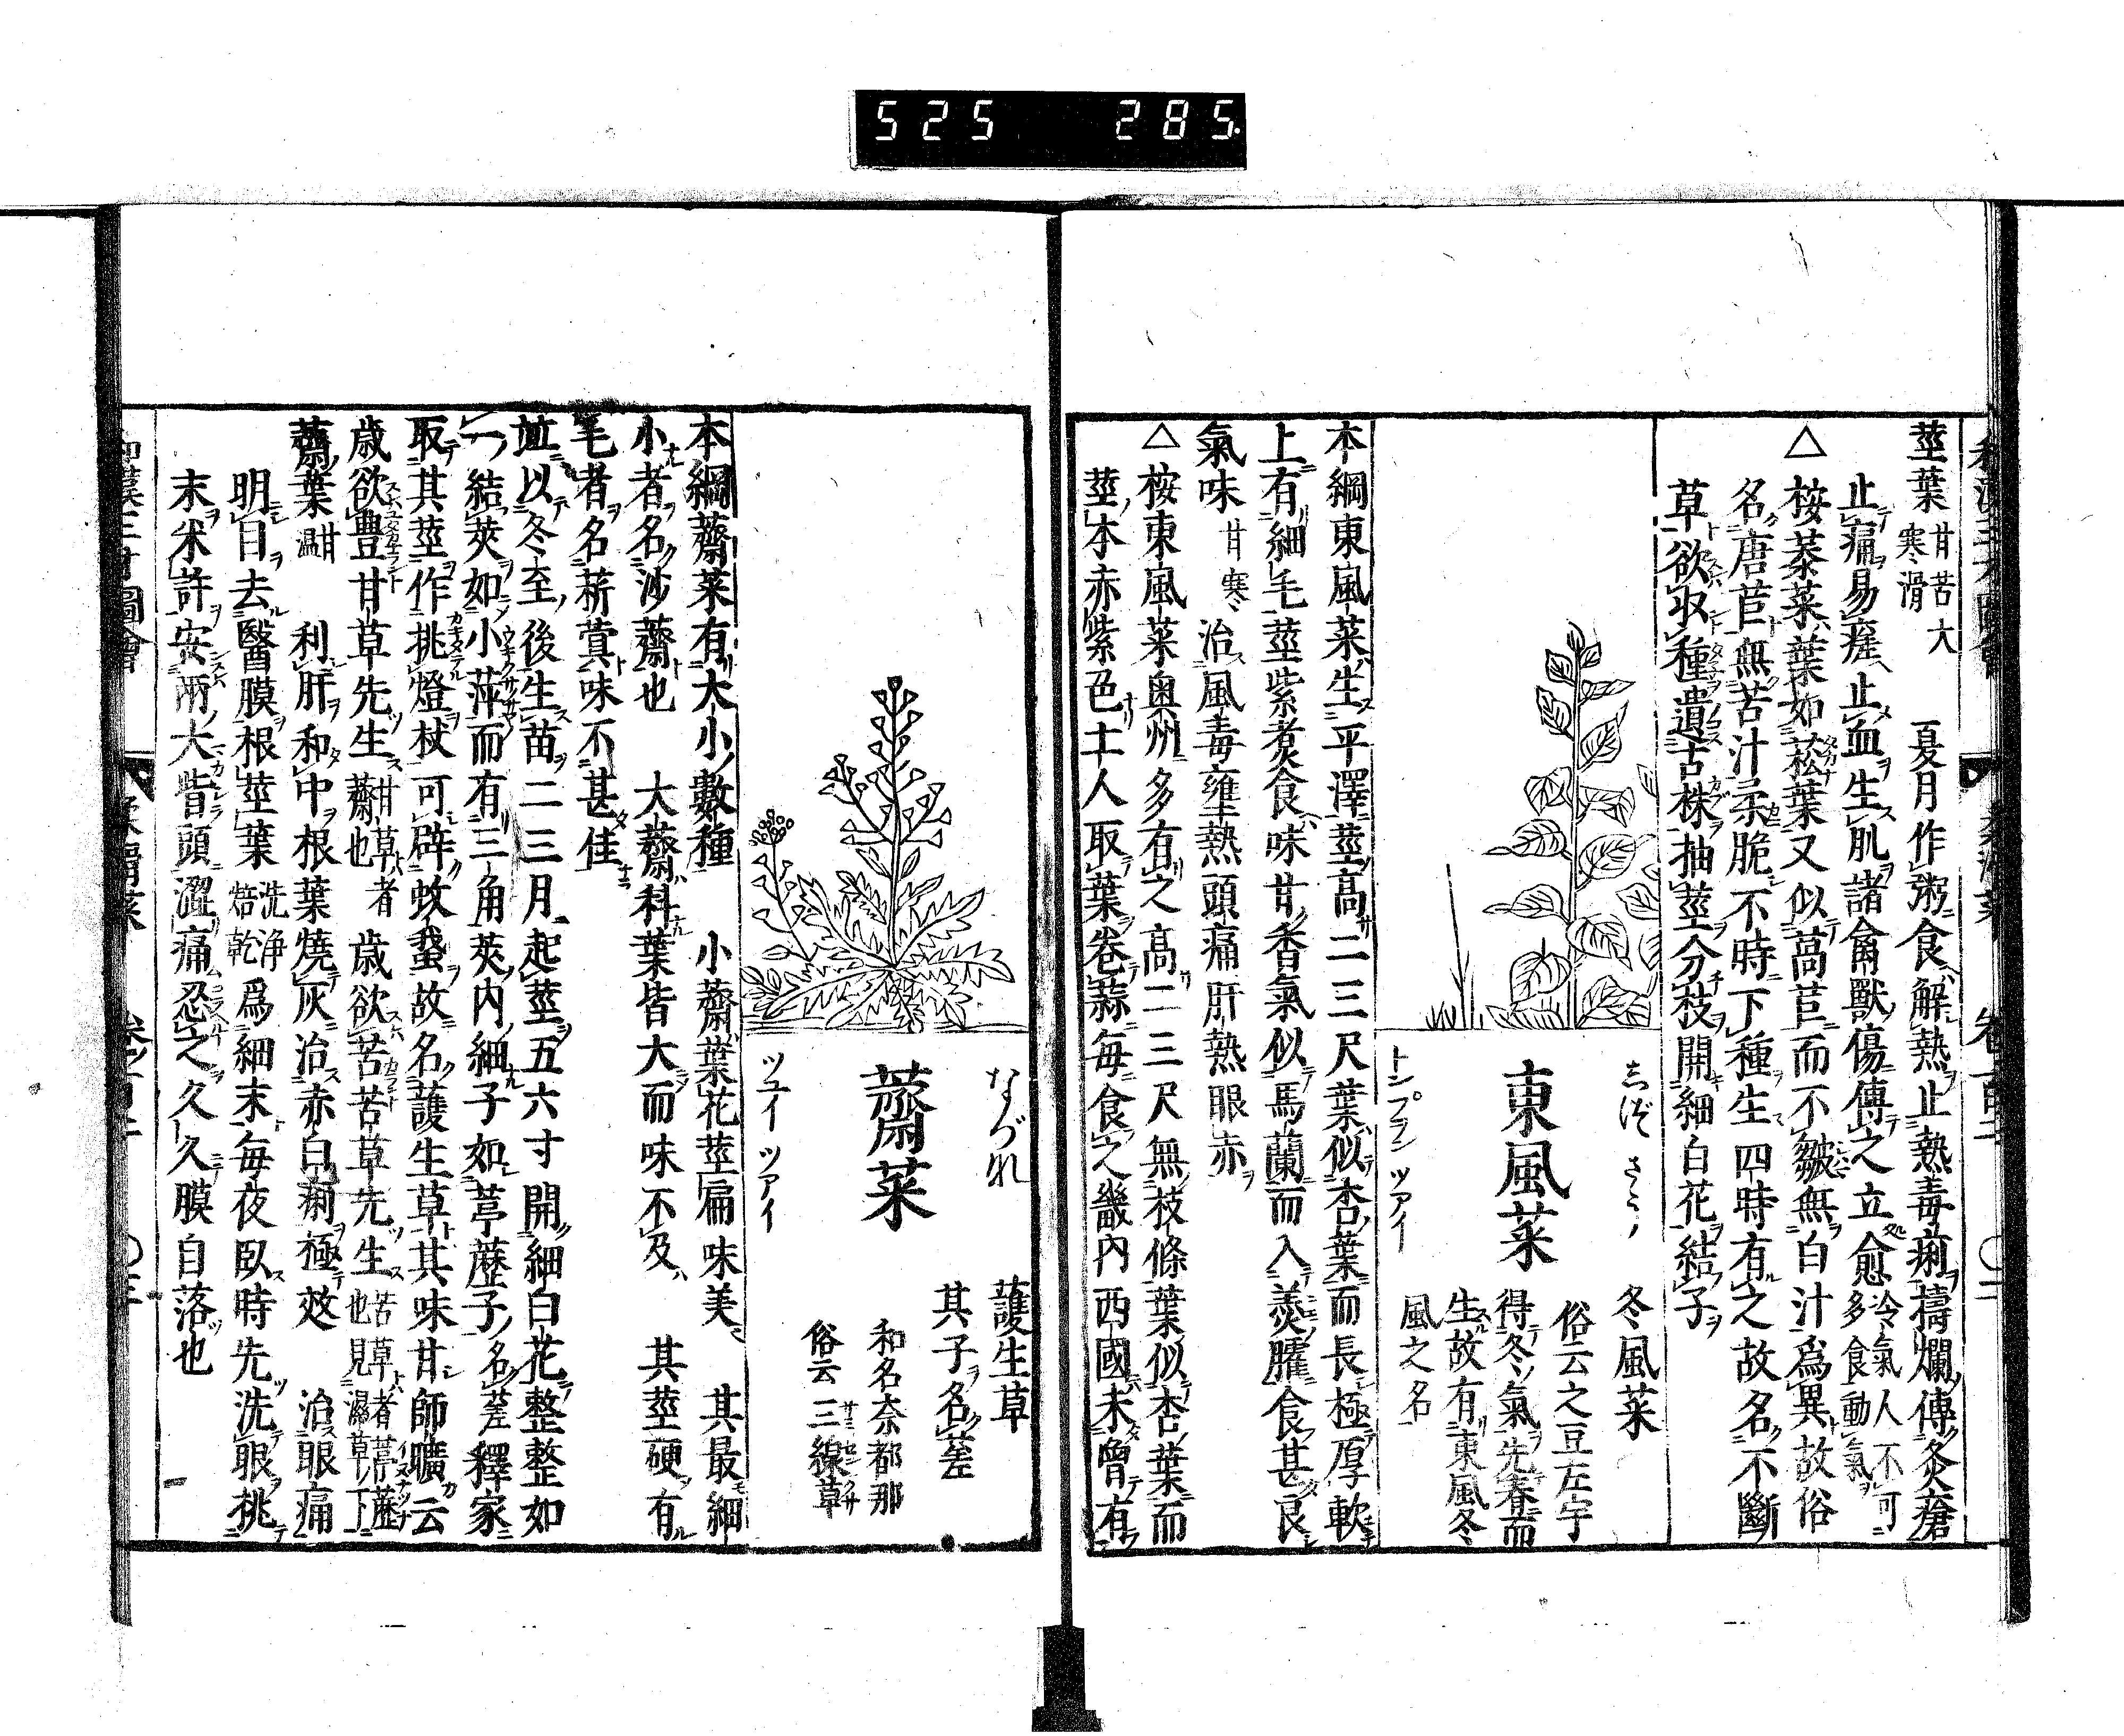 525 285.
莖葉 甘苦大寒滑 夏月作粥食解熱止熱毒痢擣爛傅灸瘡
止痛易瘥止血生肌諸禽獸傷傅之立愈 冷氣人不可多食動氣
△桉菾菜葉如菘葉又似萵苣而不皺無白汁爲異故俗
名唐苣無苦汁柔脆不時下種生四時有之故名不斷
草欲取種遺古株抽莖分枝開細白花結子
しぞさゝ
東風菜
トンプラン ツアイ
冬風菜
俗云之豆左宇
得冬氣先春而
生故有東風冬
風之名
本綱東風菜生平澤莖高二三尺葉似杏葉而長極厚軟
上有細毛莖紫煑食味甘香氣似馬蘭而入羮臛食甚良
氣味 甘寒 治風毒壅熱頭痛肝熱眼赤
△桉東風菜奥州多有之高二三尺無枝條葉似杏葉而
莖本赤紫色土人取葉卷蒜毎食之畿内西國未曾有
なづな
薺菜
ツユイ ツアイ
護生草
其子名蒫
和名奈都那
俗云三線草
本綱薺菜有大小數種 小薺葉花莖扁味美 其最細
小者名沙薺也 大薺科葉皆大而味不及 其莖硬有
毛者名菥蓂味不甚佳
並以冬至後生苗二三月起莖五六寸開細白花整整如
一結莢如小萍而有三角莢内細子如葶藶子名蒫釋家
取其莖作挑燈杖可辟蚊蛾故名護生草其味甘師曠云
歳欲豊甘草先生 甘草者薺也 歳欲苦苦草先生 苦草者葶藶也見濕草下
薺葉 甘温 利肝和中根葉燒灰治赤白痢極效 治眼痛
明目去醫膜根莖葉 洗浄焙乾 爲細末毎夜臥時先洗眼挑
末米許安兩大眥頭澀痛忍之久久膜自落也